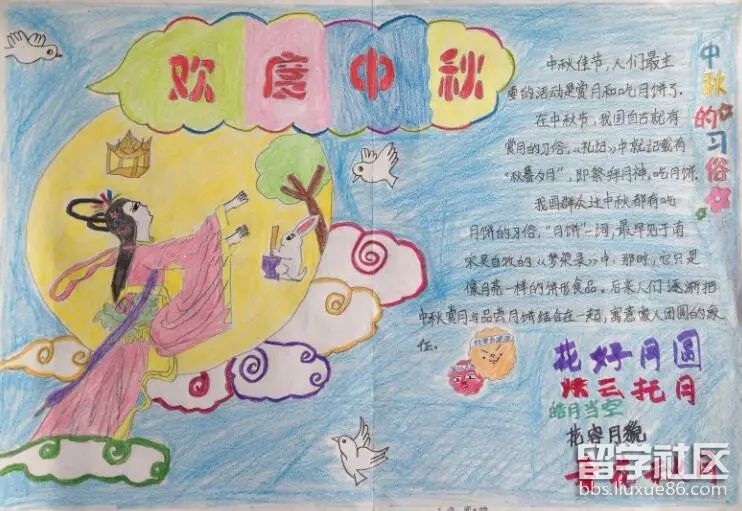 欢度中秋
中秋的习俗
中秋佳节,人们最主
要的活动是赏月和吃月饼了.
在中秋节,我国自古就有
赏月的习俗,《礼记》中就记载有
"秋暮夕月",即祭拜月神,吃月饼.
我国群众过中秋都有吃
月饼的习俗,"月饼"一词,最早见于南
宋吴自牧的《梦粱录》中,那时,它只是
像月亮一样的饼形食品。后来人们逐渐把
中秋赏月与品尝月饼结合在一起,寓意家人团圆的象
征。
花好月圆
烘云托月
皓月当空
花容月貌
春花秋月
留学社区
bbs.liuxue86.com